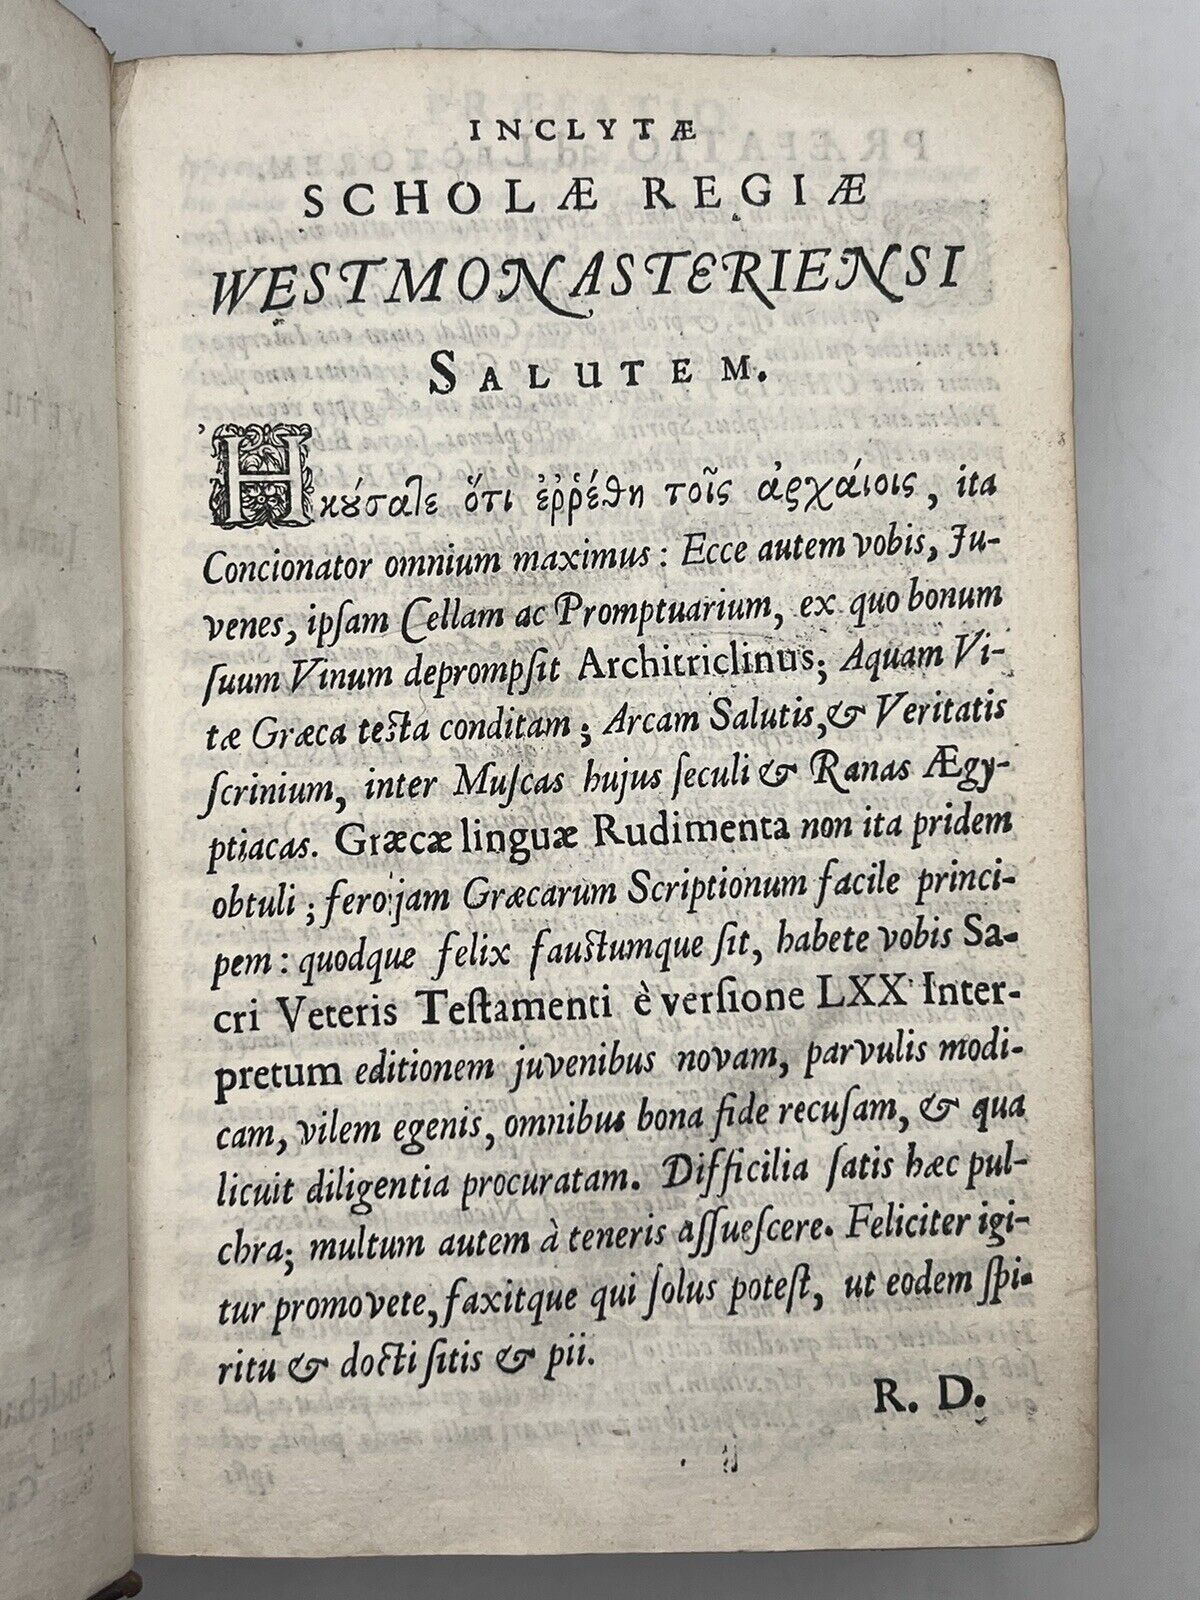 INCLYTÆ
SCHOLÆ REGIÆ
WESTMONASTERIENSI
SALUTEM.
Ἠκούσατε ὅτι ἐῤῥέθη τοῖς ἀρχάιοις, ita
Concionator omnium maximus: Ecce autem vobis, Ju-
venes, ipſam Cellam ac Promptuarium, ex quo bonum
ſuum Vinum deprompſit Architriclinus; Aquam Vi-
tæ Græca teſta conditam; Arcam Salutis, & Veritatis
ſcrinium, inter Muſcas hujus ſeculi & Ranas Ægy-
ptiacas. Græcæ linguæ Rudimenta non ita pridem
obtuli; fero jam Græcarum Scriptionum facile princi-
pem: quodque felix fauſtumque ſit, habete vobis Sa-
cri Veteris Teſtamenti è verſione LXX Inter-
pretum editionem juvenibus novam, parvulis modi-
cam, vilem egenis, omnibus bona fide recuſam, & qua
licuit diligentia procuratam. Difficilia ſatis hæc pul-
chra; multum autem à teneris aſſueſcere. Feliciter igi-
tur promovete, faxitque qui ſolus poteſt, ut eodem ſpi-
ritu & docti ſitis & pii.
R. D.